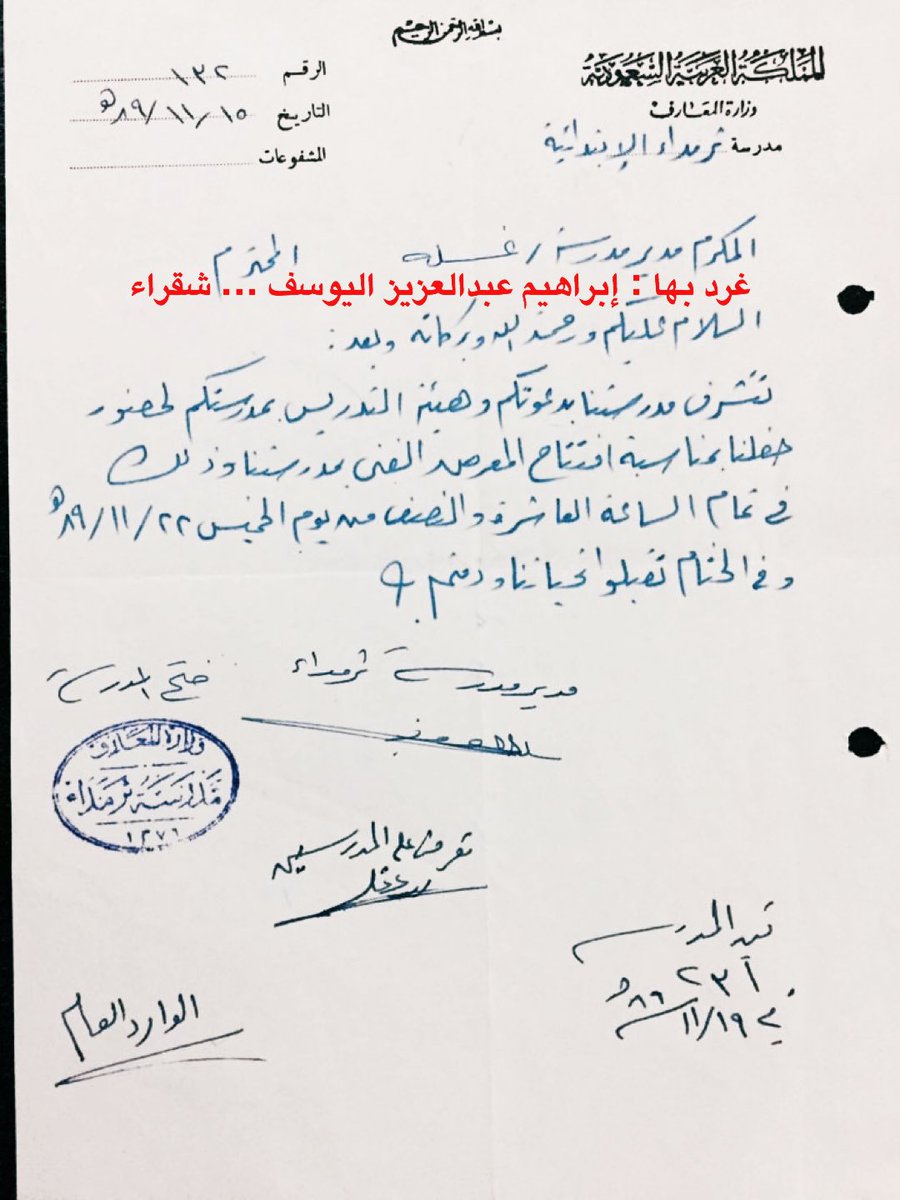 بسم الله الرحمن الرحيم
المملكة العربية السعودية
وزارة المعارف
مدرسة ثرمداء الإبتدائية
الرقم ١٣٢
التاريخ ١٥/١١/٨٩هـ
المشفوعات
المكرم مدير مدرسة / غسله المحترم
غرد بها : إبراهيم عبدالعزيز اليوسف ... شقراء
السلام عليكم ورحمة الله وبركاته وبعد :
تتشرف مدرستنا بدعوتكم وهيئة التدريس بمدرستكم لحضور
حفلنا بمناسبة افتتاح المعرض الفني بمدرستنا وذلك
في تمام الساعة العاشرة والنصف من يوم الخميس ٢٢/١١/٨٩هـ
وفي الختام تقبلوا تحياتنا ودمتم
مدير مدرسة ثرمداء
ختم المدرسة
وزارة المعارف
مدرسة ثرمداء
١٣٧٦
تعرض على المدرسين
قيد المدرسة
٢٣١
في ١٩/١١/٨٩هـ
الوارد العام